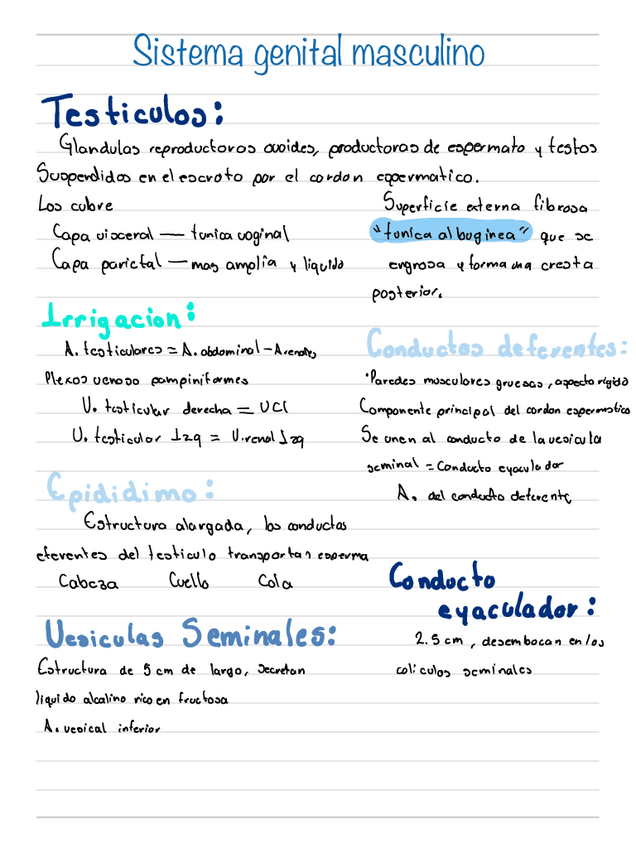 Sistema genital masculino
Testiculos:
Glandulas reproductoras ovoides, productoras de espermato y testos
Suspendidos en el escroto por el cordon espermatico.
Los cubre
Capa visceral — tunica vaginal
Capa parietal — mas amplia y liquido
Superficie externa fibrosa
"tunica albuginea" que se
engrosa y forma una cresta
posterior.
Irrigacion:
A. testiculares = A. abdominal - A renales
Plexos venoso pampiniformes
V. testicular derecha = VCI
V. testicular Izq = V. renal Izq
Epididimo:
Estructura alargada, los conductos
eferentes del testiculo transportan esperma
Cabeza Cuello Cola
Vesiculas Seminales:
Estructura de 5 cm de largo, secretan
liquido alcalino rico en fructosa
A. vesical inferior
Conductos deferentes:
·Paredes musculares gruesas, aspecto rigido
Componente principal del cordon espermatico
Se unen al conducto de la vesicula
seminal = Conducto eyaculador
A. del conducto deferente
Conducto
eyaculador:
2.5 cm, desembocan en los
coliculos seminales